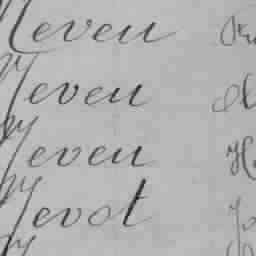 Neveu
Neveu
Neveu
Nevot